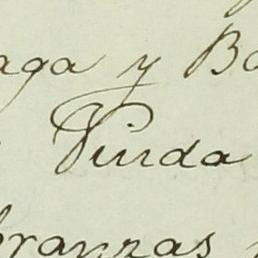 aga y Ba
Viuda
branzas